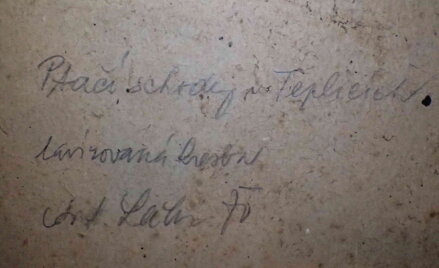 Ptačí schody v Teplicích
lavírovaná kresba
Ant.